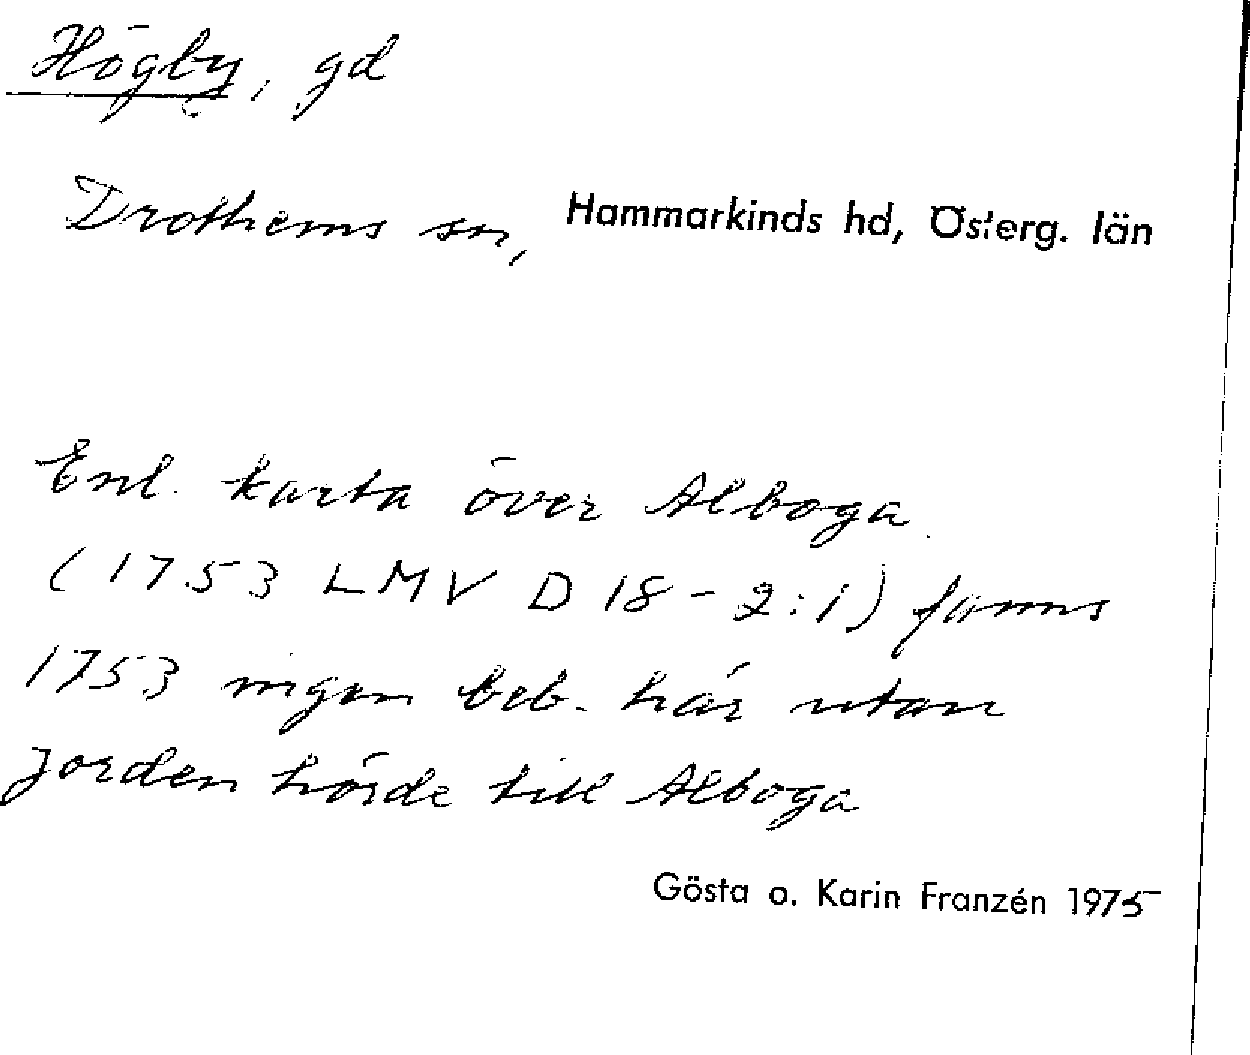 Högby, gd
Drothems sn, Hammarkinds hd, Österg. län
Enl. karta över Alboga
(1753 LMV D 18-2:1) fanns
1753 ingen beb. här utan
jorden hörde till Alboga
Gösta o. Karin Franzén 1975